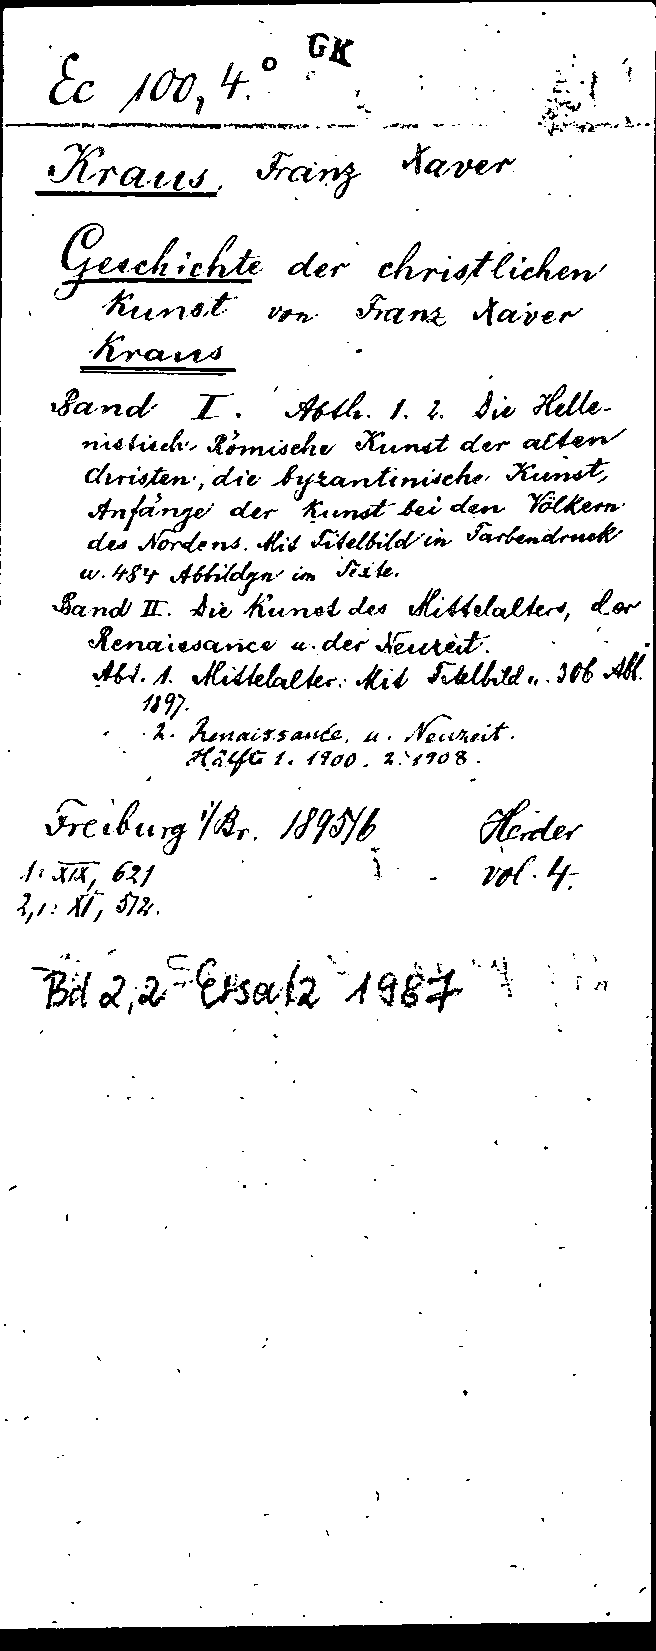 GK
Ec 100, 4.°
Kraus, Franz Xaver
Geschichte der christlichen
Kunst von Franz Xaver
Kraus
Band I. Abth. 1. 2. Die Helle-
nistisch-Römische Kunst der alten
Christen, die byzantinische Kunst,
Anfänge der Kunst bei den Völkern
des Nordens. Mit Titelbild in Farbendruck
u. 484 Abbildgn im Texte.
Band II. Die Kunst des Mittelalters, der
Renaissance u. der Neuzeit.
Abt. 1. Mittelalter. Mit Titelbild u. 306 Abb.
1897.
2. Renaissance u. Neuzeit.
Hälfte 1. 1900. 2. 1908.
Freiburg i/Br. 1895/6 Herder
1: XIX, 621 vol. 4.
2,1: XI, 512.
Bd 2,2 Ersatz 1987